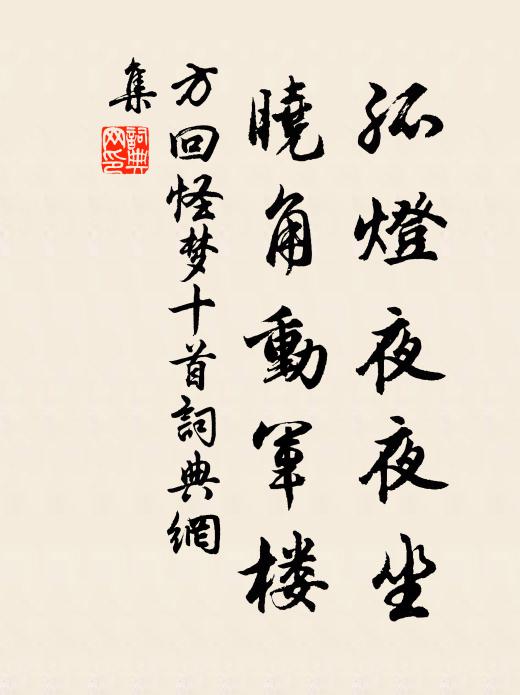 孤燈夜夜坐
曉角動軍楼
方回怪梦十首詞典網
集
詞典网印